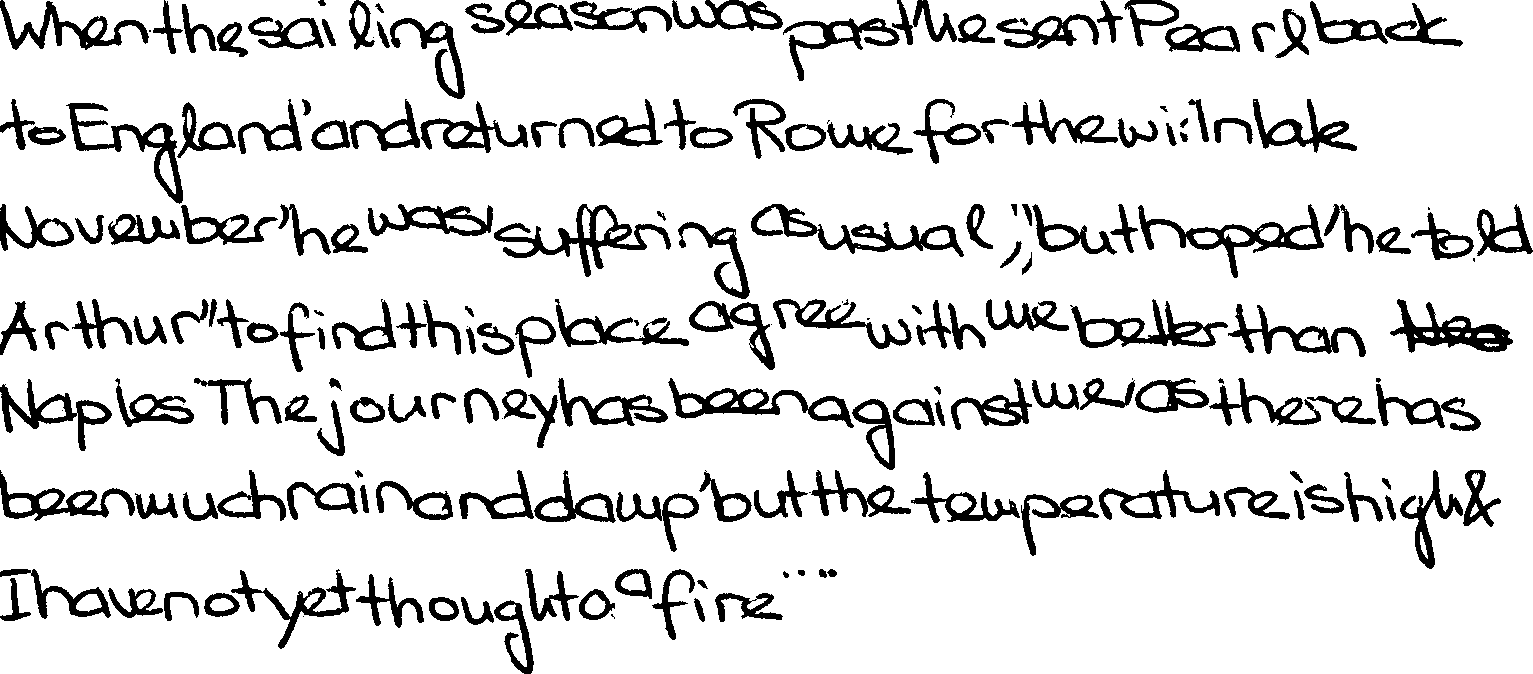 When the sailing season was past he sent Pearl back
to England' and returned to Rome for the wi: In late
November' he was' suffering as usual,," but hoped' he told
Arthur" to find this place agree with me better than
Naples The journey has been against me, as there has
been much rain and damp' but the temperature is high &
I have not yet thought o a fire....